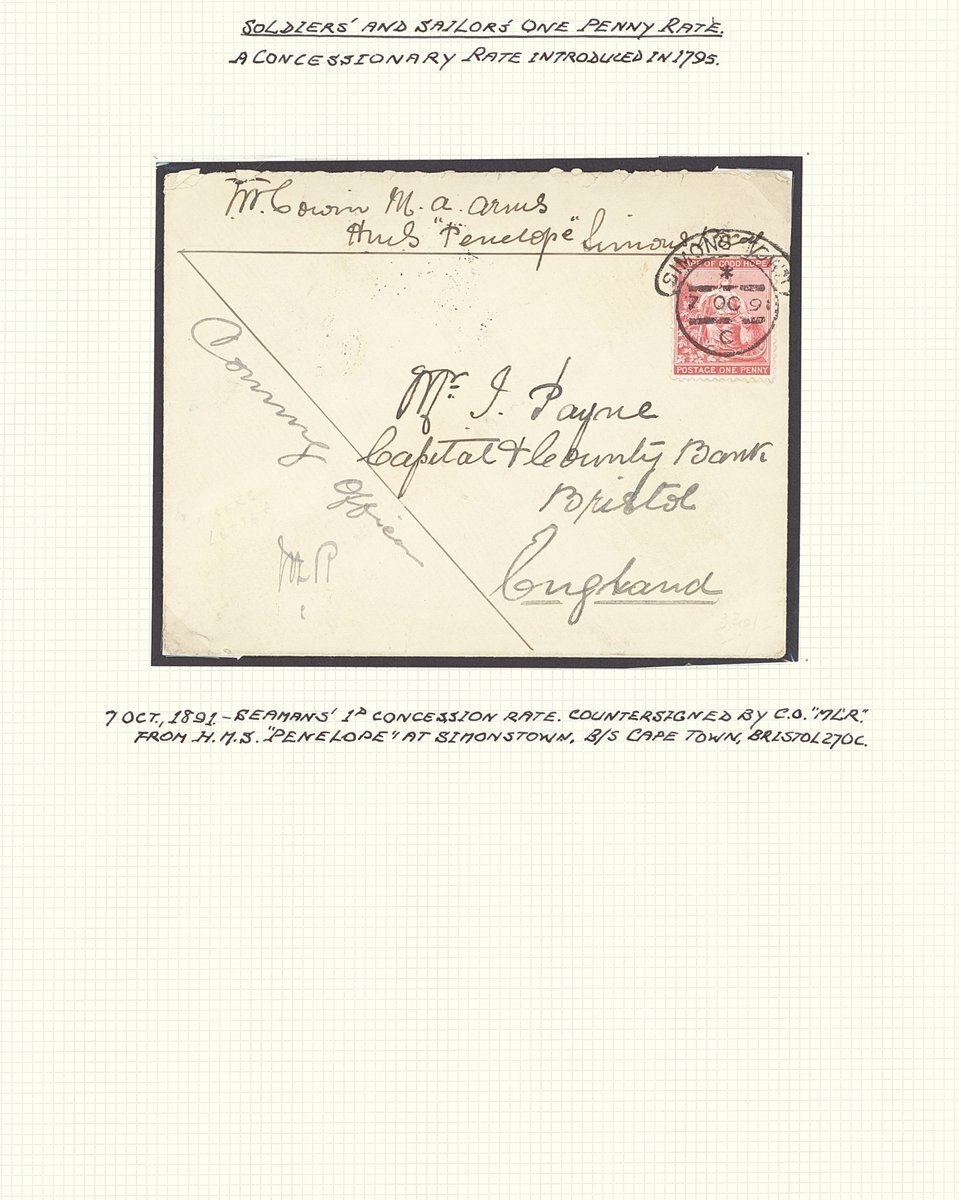 SOLDIERS' AND SAILORS' ONE PENNY RATE.
A CONCESSIONARY RATE INTRODUCED IN 1795.
W. Cowin M. a. arms
HMS "Penelope" Simons
SIMONS TOWN
CAPE OF GOOD HOPE
7 OC 91
C
POSTAGE ONE PENNY
Mr. J. Payne
Capital & County Bank
Bristol
England
Comng
Officer
MLR
7 OCT., 1891. - SEAMANS' 1D CONCESSION RATE. COUNTERSIGNED BY C.O. "MLR".
FROM H.M.S. "PENELOPE" AT SIMONSTOWN. B/S CAPE TOWN, BRISTOL 27OC.